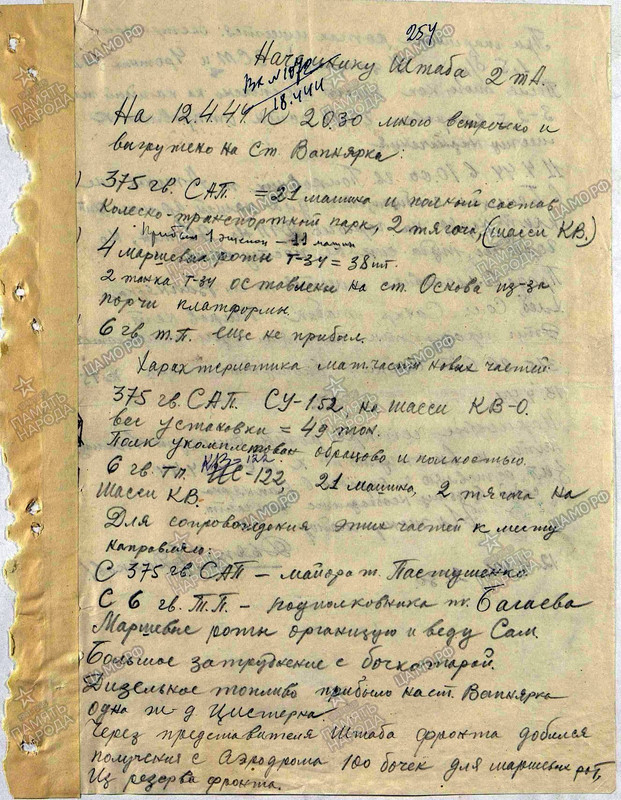 254
Начальнику Штаба 2 тА.
Вх N 1872
18.4.44
На 12.4.44. к 20.30 мною встречено и
выгружено на Ст. Вапнярка:
375 гв. САП. = 21 машина и полный состав
Колесно-транспортный парк, 2 тягача, (шасси КВ.)
Прибыл 1 эшелон – 11 машин
4 Маршевые роты Т-34 = 38 шт.
2 танка Т-34 оставлены на ст. Основа из-за
порчи платформы.
6 гв т.П. еще не прибыл.
Характеристика мат.части новых частей
375 гв. САП. СУ-152, на шасси КВ-О.
вес установки = 49 тон.
Полк укомплетован образцово и полностью.
6 гв. тп. КВ-122 21 машина, 2 тягача на
Шасси КВ.
Для сопровождения этих частей к месту
направляю:
С 375 гв САП – майора т. Пастушенко.
С 6 гв. Т.П. – подполковника т. Багаева
Маршевые роты организую и веду Сам.
Большое затруднение с бочкотарой.
Дизельное топливо прибыло на ст. Вапнярка
одна ж-д Цистерна.
Через представителя Штаба фронта добился
получения с Аэродрома 100 бочек для маршевых рот,
Из резерва фронта.
ПАМЯТЬ НАРОДА
ЦАМО.РФ